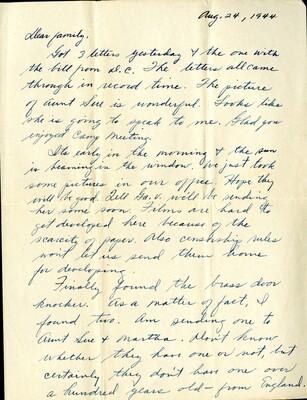 Aug. 24, 1944
Dear family,
Got 3 letters yesterday & the one with
the bill from D.C. The letters all came
through in record time. The picture
of Aunt Sue is wonderful. Looks like
she is going to speak to me. Glad you
enjoyed Camp Meeting.
Its early in the morning & the sun
is beaming in the window. We just took
some pictures in our office. Hope they
will be good. Tell Ga. V. will be sending
her some soon. Films are hard to
get developed here because of the
scarcity of paper. Also censorship rules
wont let us send them home
for developing.
Finally found the brass door
knocker. As a matter of fact, I
found two. Am sending one to
Aunt Sue & Martha. Don't know
whether they have one or not, but
certainly they don't have one over
a hundred years old - from England.